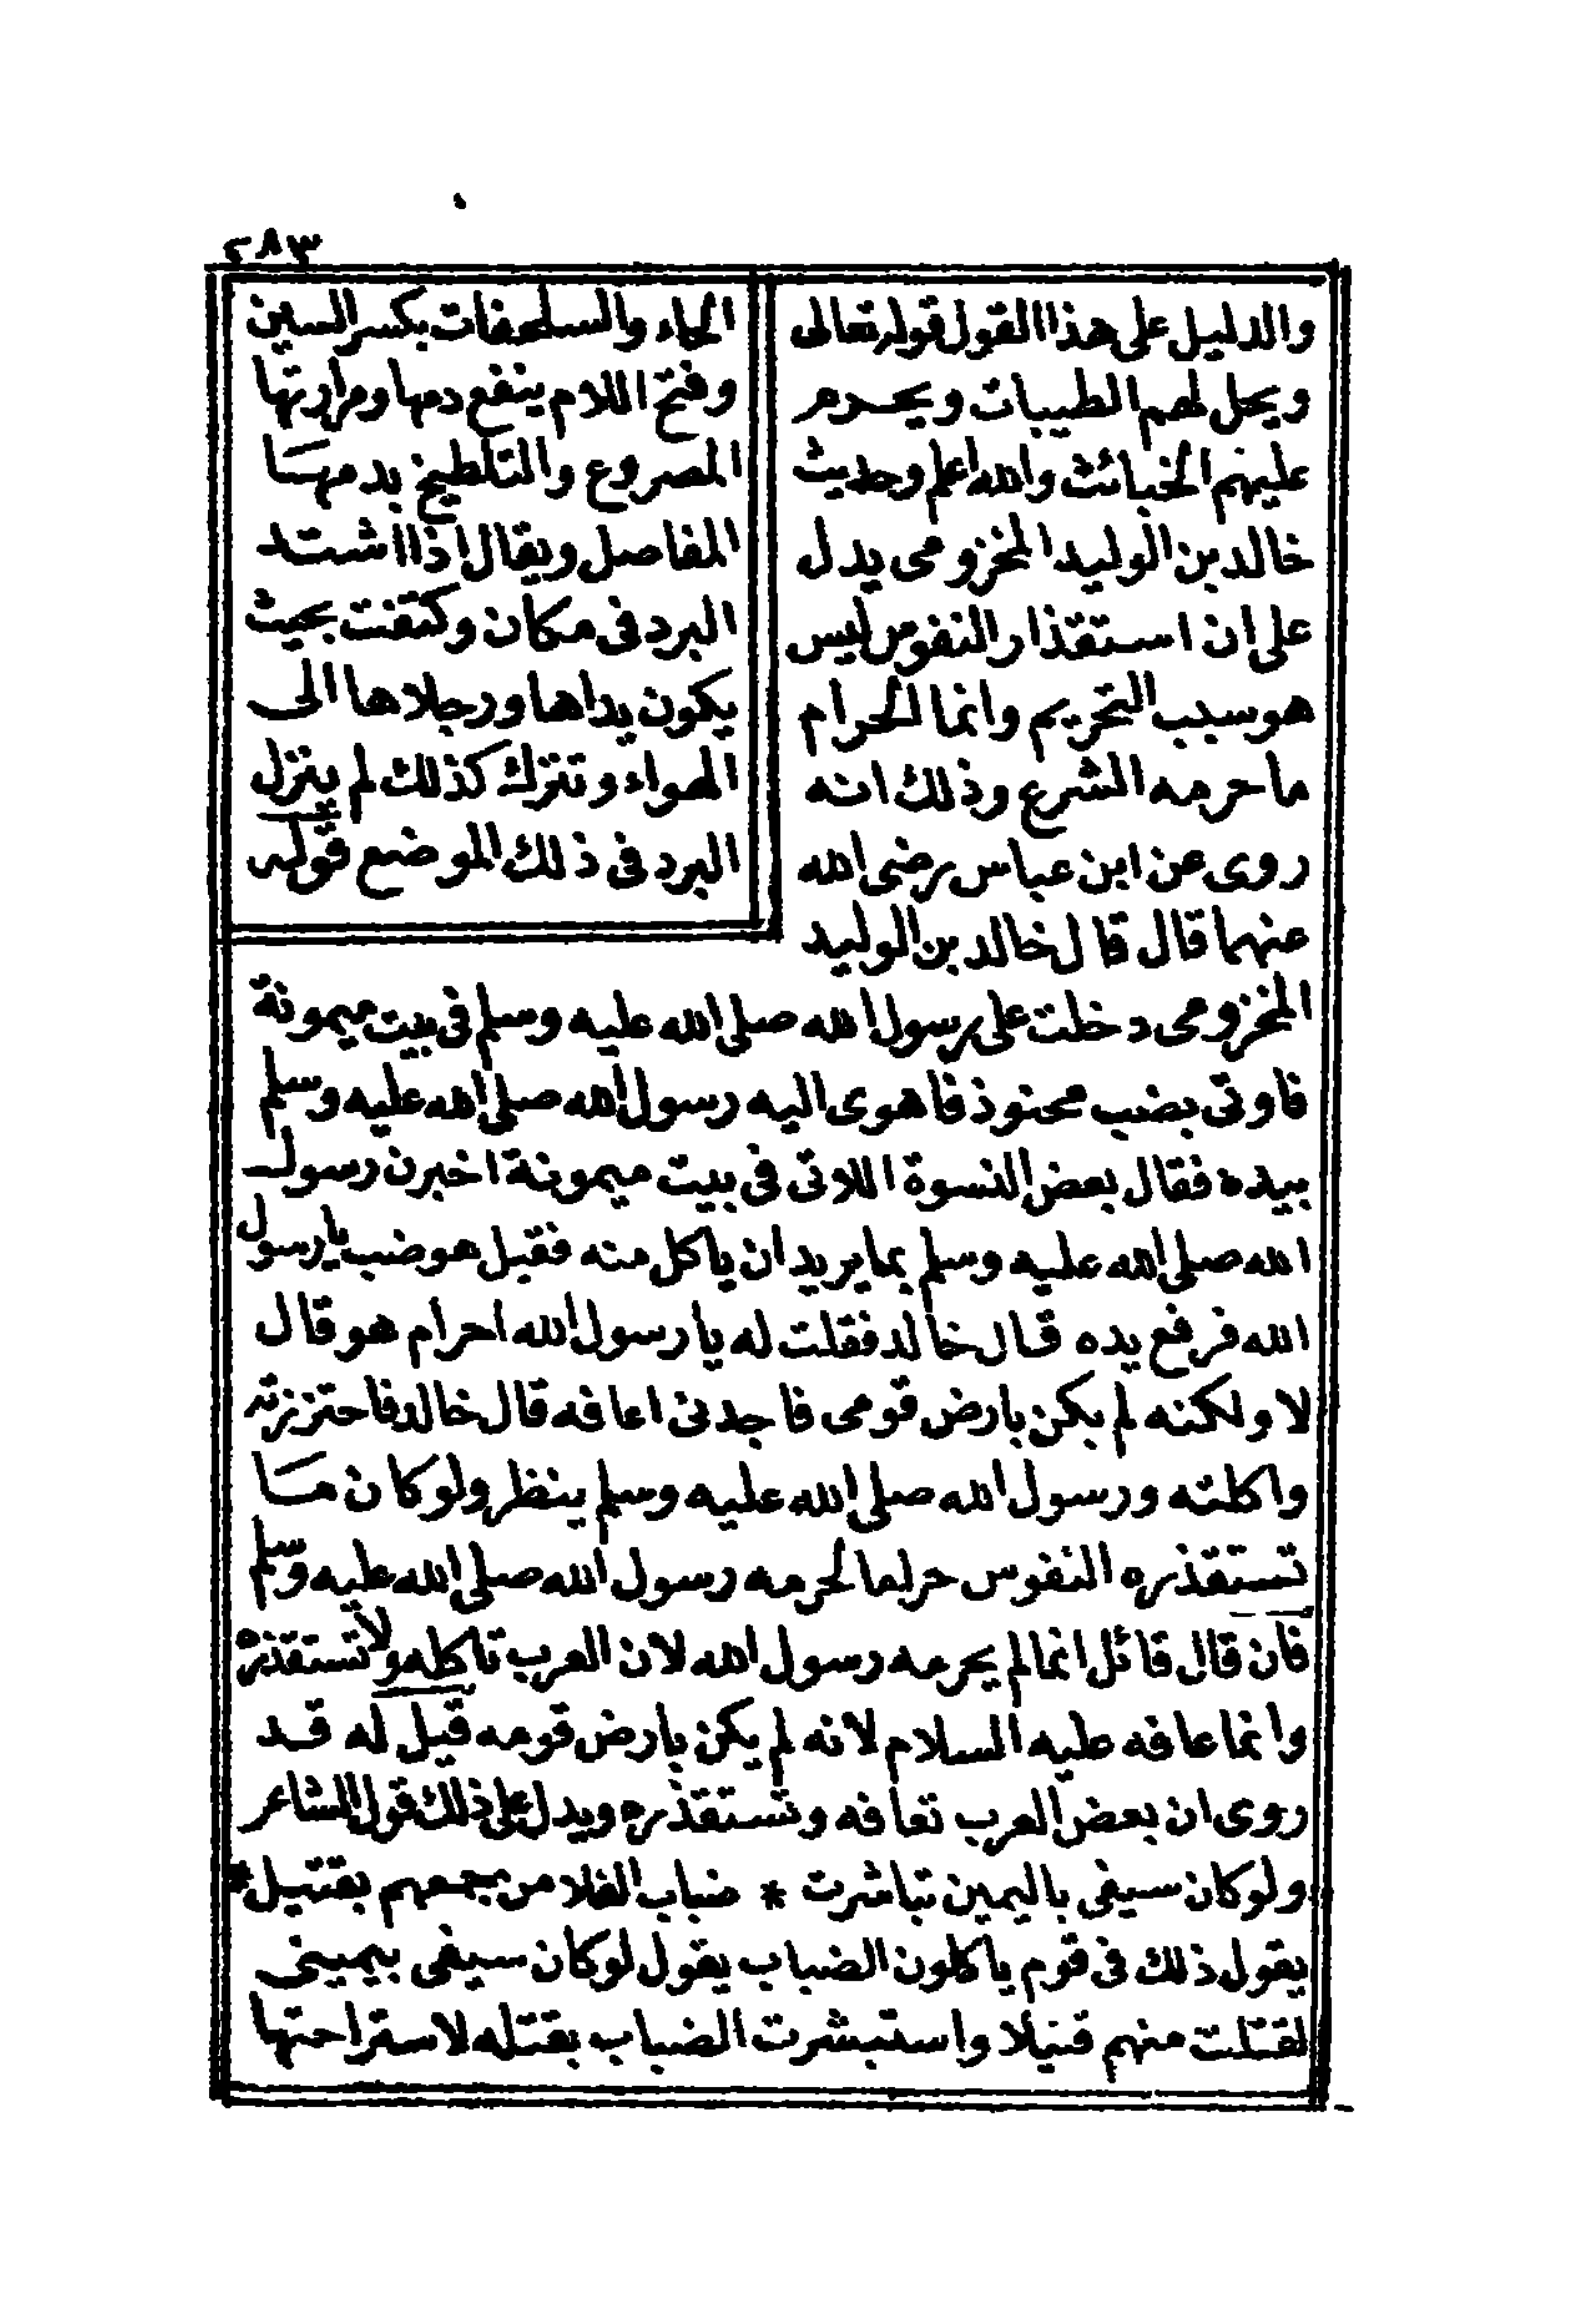 ٢٨٣
والدليل على هذا القول قوله تعالى
ويحل لهم الطيبات ويحرم
عليهم الخبائث والله اعلم وحديث
خالد بن الوليد المخزومى يدل
على ان استقذار النفوس ليس
هو سبب التحريم وانما الحرام
ما حرمه الشرع وذلك انه
روى عن ابن عباس رضى الله
عنهما قال قال خالد بن الوليد
المخزومى دخلت على رسول الله صلى الله عليه وسلم فى بيت ميمونة
فاوتى بضب محنوذ فاهوى اليه رسول الله صلى الله عليه وسلم
بيده فقال بعض النسوة اللاتى فى بيت ميمونة اخبرن رسول
الله صلى الله عليه وسلم بما يريد ان ياكل منه فقيل هو ضب يا رسول
الله فرفع يده قال خالد فقلت له يا رسول الله احرام هو قال
لا ولكنه لم يكن بارض قومى فاجدنى اعافه قال خالد فاحتززته
واكلته ورسول الله صلى الله عليه وسلم ينظر ولو كان ما
تستقذره النفوس حراما لحرمه رسول الله صلى الله عليه وسلم
فان قال قائل انما لم يحرمه رسول الله لان العرب تاكله ولا تستقذره
وانما عافه عليه السلام لانه لم يكن بارض قومه قيل له قد
روى ان بعض العرب تعافه وتستقذره ويدل على ذلك قول الشاعر
ولو كان سيفى باليمين تباشرت * ضباب الفلا من جمعهم بقتيل *
يقول ذلك فى قوم ياكلون الضباب يقول لو كان سيفى بيمينى
لقتلت منهم قتيلا واستبشرت الضباب بقتله لاستراحتها
الحاء والسلحفات بكسر السين
وفتح اللام ينفع دمها ومرارتها
المصروع والتلطيخ بدمها
المفاصل ويقال اذا اشتد
البرد فى مكان وكتفت بحيث
يكون يداها ورجلاها الى
الهواء وتترك كذلك لم ينزل
البرد فى ذلك الموضع قوله